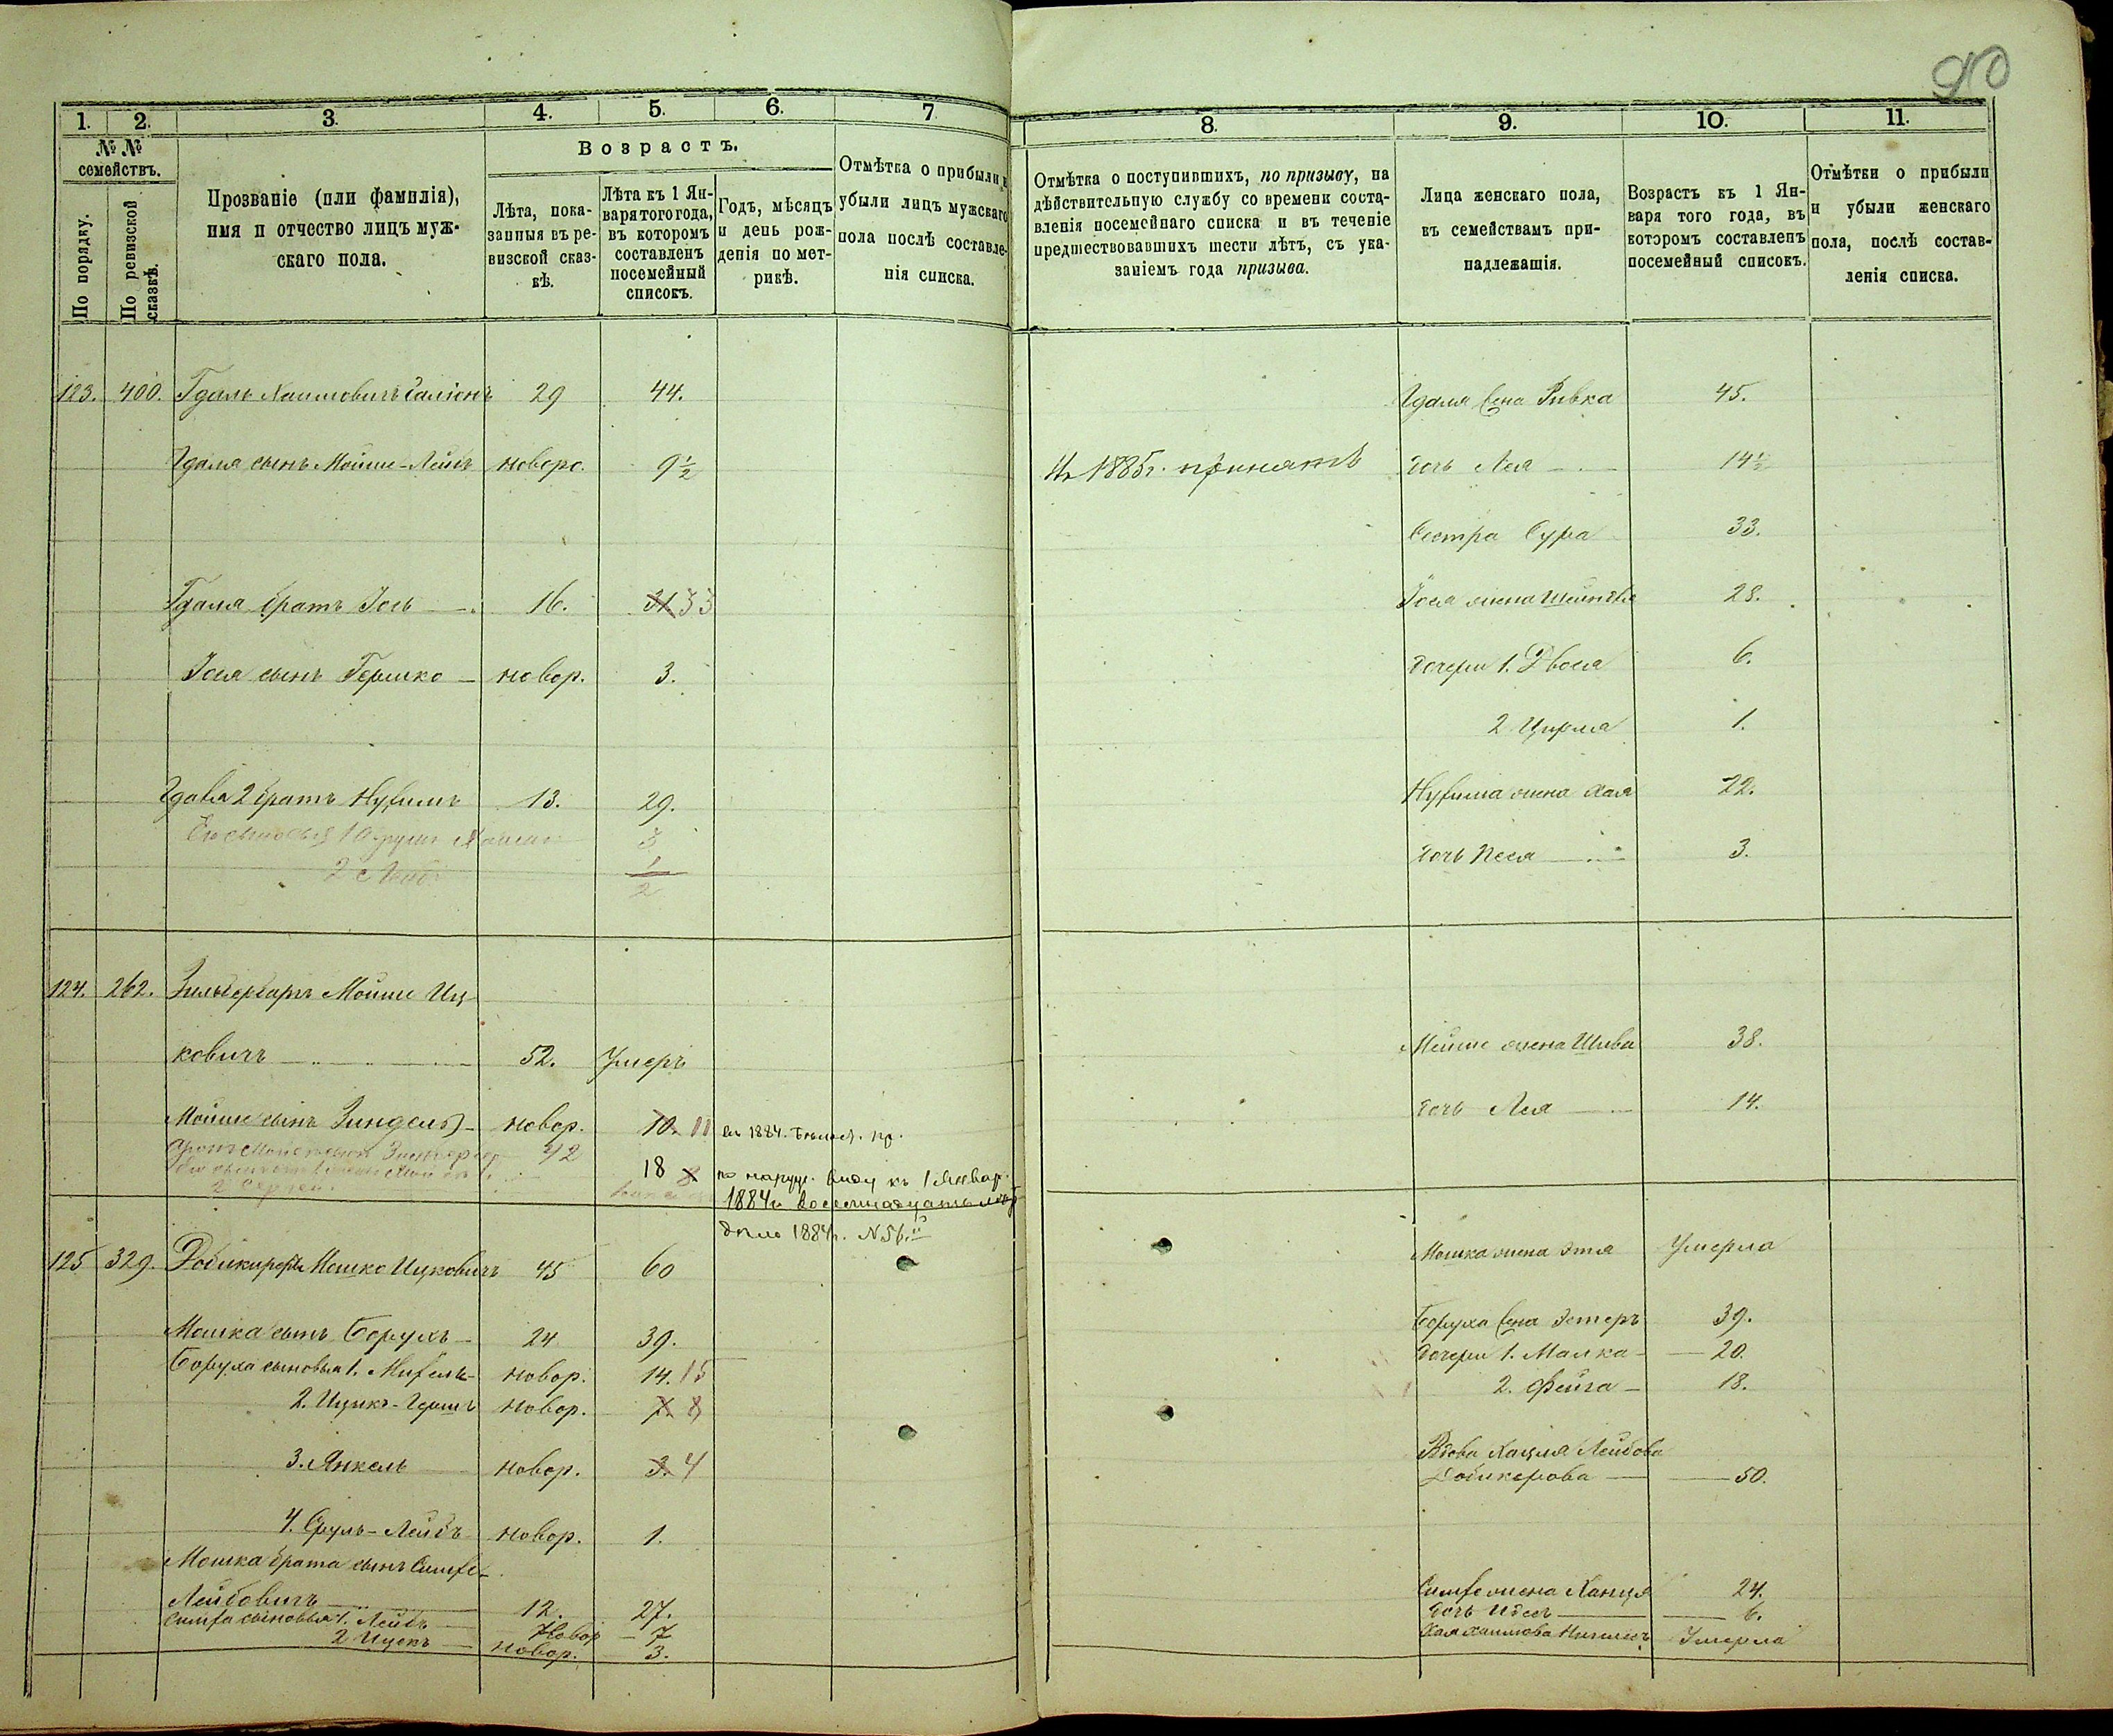 90
1. 2. 3. 4. 5. 6. 7
№ № семействъ.
По порядку.
По ревизской сказкѣ.
Прозваніе (или фамилія),
имя и отчество лицъ муж-
скаго пола.
Возрастъ.
Лѣта, пока-
занныя въ ре-
визской сказ-
кѣ.
Лѣта къ 1 Ян-
варя того года,
въ которомъ
составленъ
посемейный
списокъ.
Годъ, мѣсяцъ
и день рож-
денія по мет-
рикѣ.
Отмѣтка о прибыли и
убыли лицъ мужскаго
пола послѣ составле-
нія списка.
123. 400. Гдаль Хаимовичъ 29 44.
Гдаля сынъ Мойше-Лейбъ новоро. 9½
Гдаля братъ Іось 16. 31. 33
Іося сынъ Гершко новор. 3.
Гдаля 2 братъ Нухимъ 13. 29.
3
2
1/2
124. 262. Зильбербаръ Мойше Иц-
ковичъ 52. Умеръ
Мойше сынъ Зиндель новор. 10. 11 въ 1884.
42
18 8 по наруж. виду къ 1 Январ.
1884г. восемнадцать лѣтъ
дѣло 1884г. N 56.
125 329. Мошко Ицковичъ 45 60
Мошка сынъ Борухъ 24 39.
Боруха сыновья 1. новор. 14. 15
2. Ицикъ-Гершъ новор. 7. 8
3. Янкель новор. 3. 4
4. Сруль-Лейбъ новор. 1.
Мошка брата сынъ Симхе
Лейбовичъ 12. 27.
Симха сыновья 1. Лейбъ Новор 7
2 Ицекъ новор. 3.
8. 9. 10. 11.
Отмѣтка о поступившихъ, по призыву, на
дѣйствительную службу со времени соста-
вленія посемейнаго списка и въ теченіе
предшествовавшихъ шести лѣтъ, съ ука-
заніемъ года призыва.
Лица женскаго пола,
въ семействамъ при-
надлежащія.
Возрастъ къ 1 Ян-
варя того года, въ
которомъ составленъ
посемейный списокъ.
Отмѣтки о прибыли
и убыли женскаго
пола, послѣ состав-
ленія списка.
Гдаля жена Ривка 45.
1885г. принятъ дочь Лея 14½
Сестра Сура 33.
Іося жена 28.
дочери 1. Двося 6.
2 Цирля 1.
Нухима жена Хая 22.
дочь Песя 3.
Мойше жена Шива 38.
дочь Лея 14.
Мошка жена Этля Умерла
Боруха жена Эстеръ 39.
дочери 1. Малка 20.
2. Фейга 18.
Вдова Хацля Лейбова
50.
Симхе жена Ханця 24.
дочь Идесъ 6.
Хая Хаимова Умерла